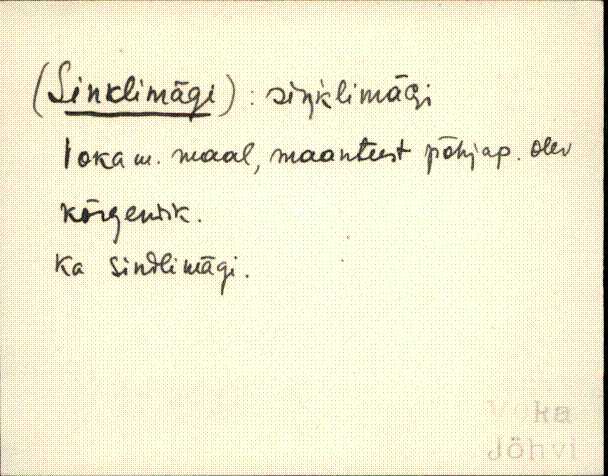 (Sinklimägi) : siŋ̀klimägi
Toka m. maal, maanteest põhjap. olev
kõrgendik.
ka sindlimägi.
Voka
Jõhvi